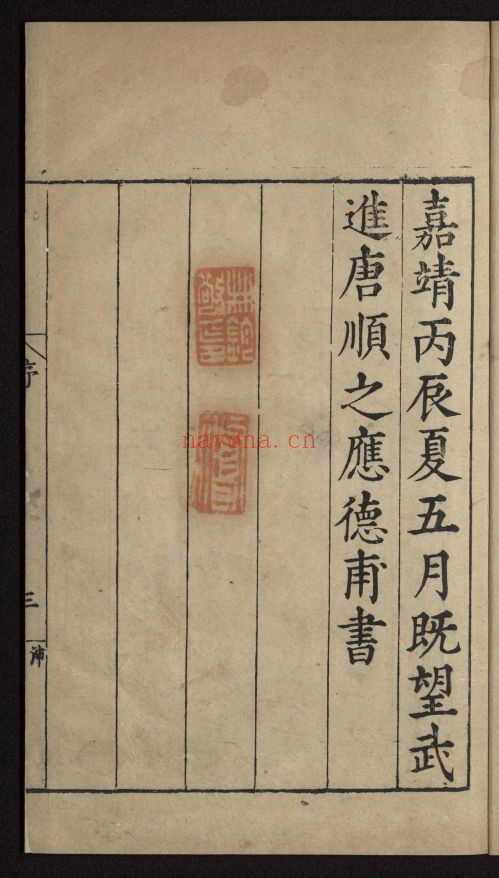 嘉靖丙辰夏五月既望武
進唐順之應德甫書
序
三
nayona.cn